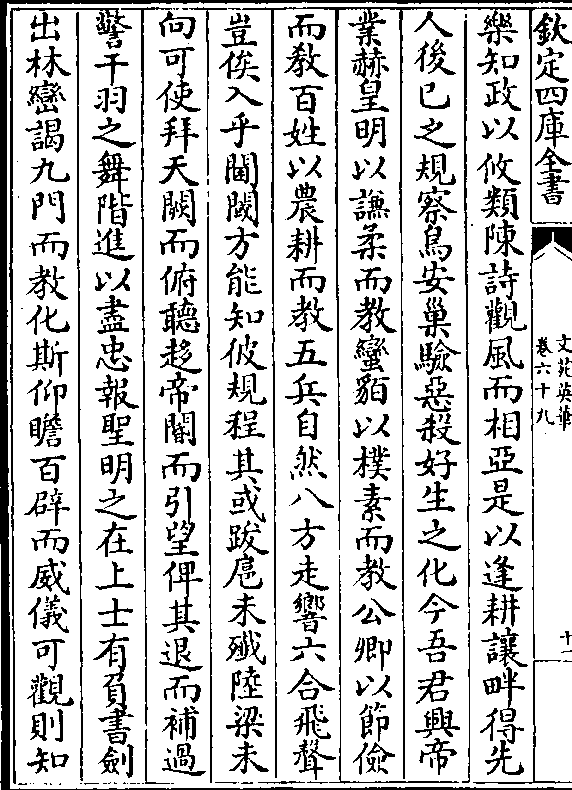 欽定四庫全書
文苑英華
卷六十九
十一
樂知政以攸類陳詩觀風而相亞是以逢耕讓畔得先
人後已之規察鳥安巢驗惡殺好生之化今吾君興帝
業赫皇明以謙柔而教蠻貊以樸素而教公卿以節儉
而教百姓以農耕而教五兵自然八方走響六合飛聲
豈俟入乎閶闔方能知彼規程其或跋扈未殱陸梁未
向可使拜天闕而俯聽趍帝閽而引望俾其退而補過
警干羽之舞階進以盡忠報聖明之在上士有負書劍
出林巒謁九門而教化斯仰瞻百辟而威儀可觀則知